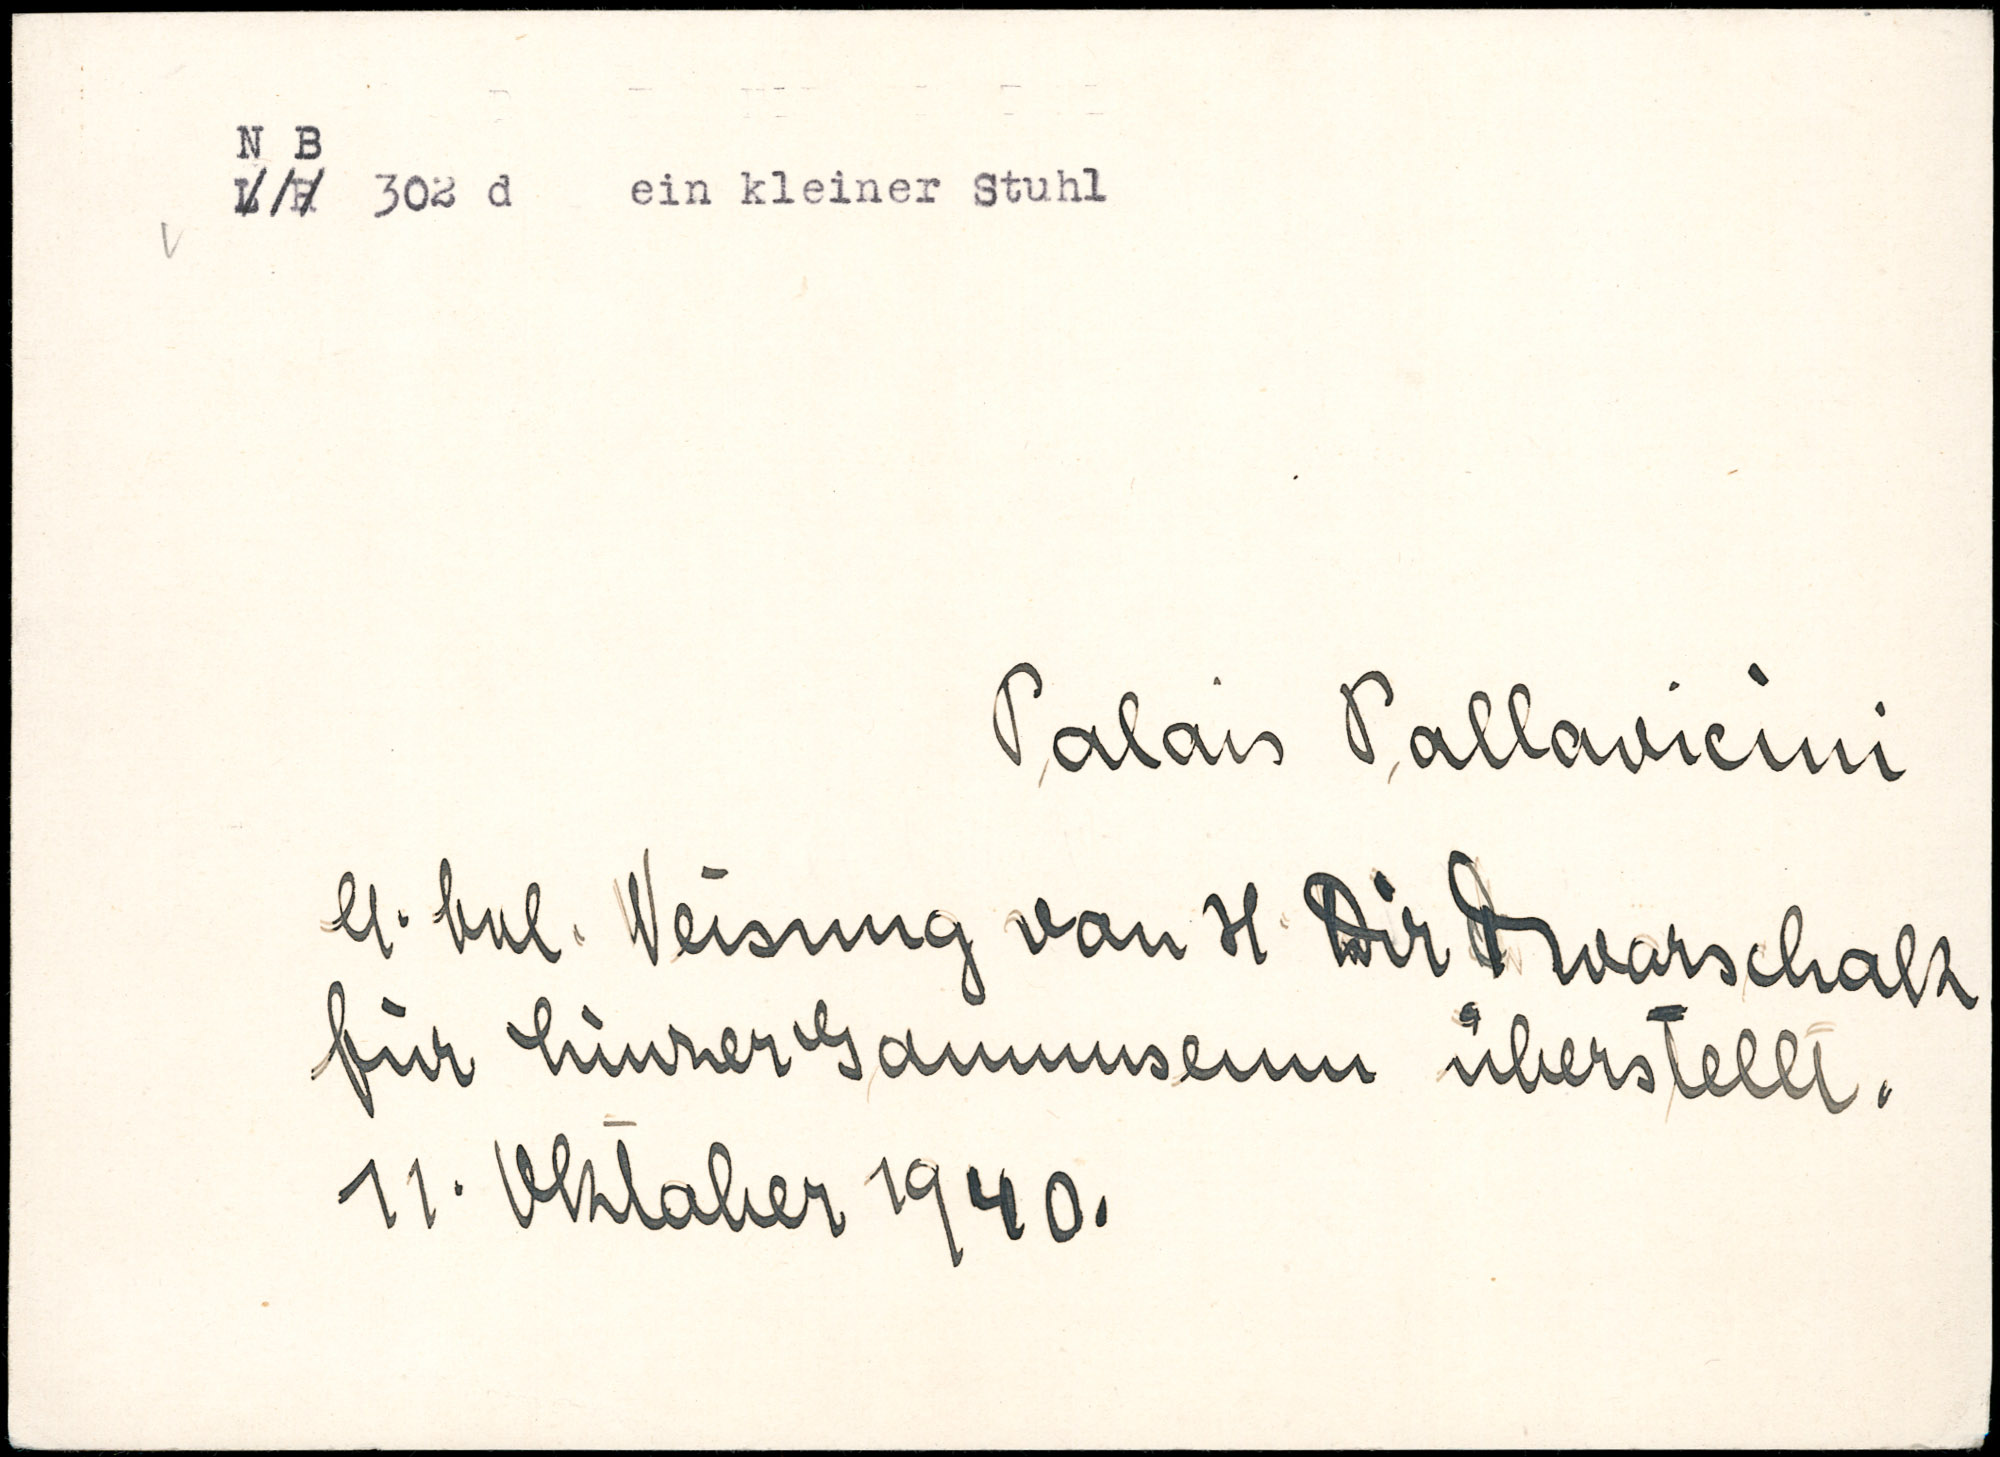 N B
L/ R/ 302 d ein kleiner Stuhl
Palais Pallavicini
lt. tel. Weisung von H. Dir Dworschak
für Linzer Gaumuseum überstellt.
11. Oktober 1940.